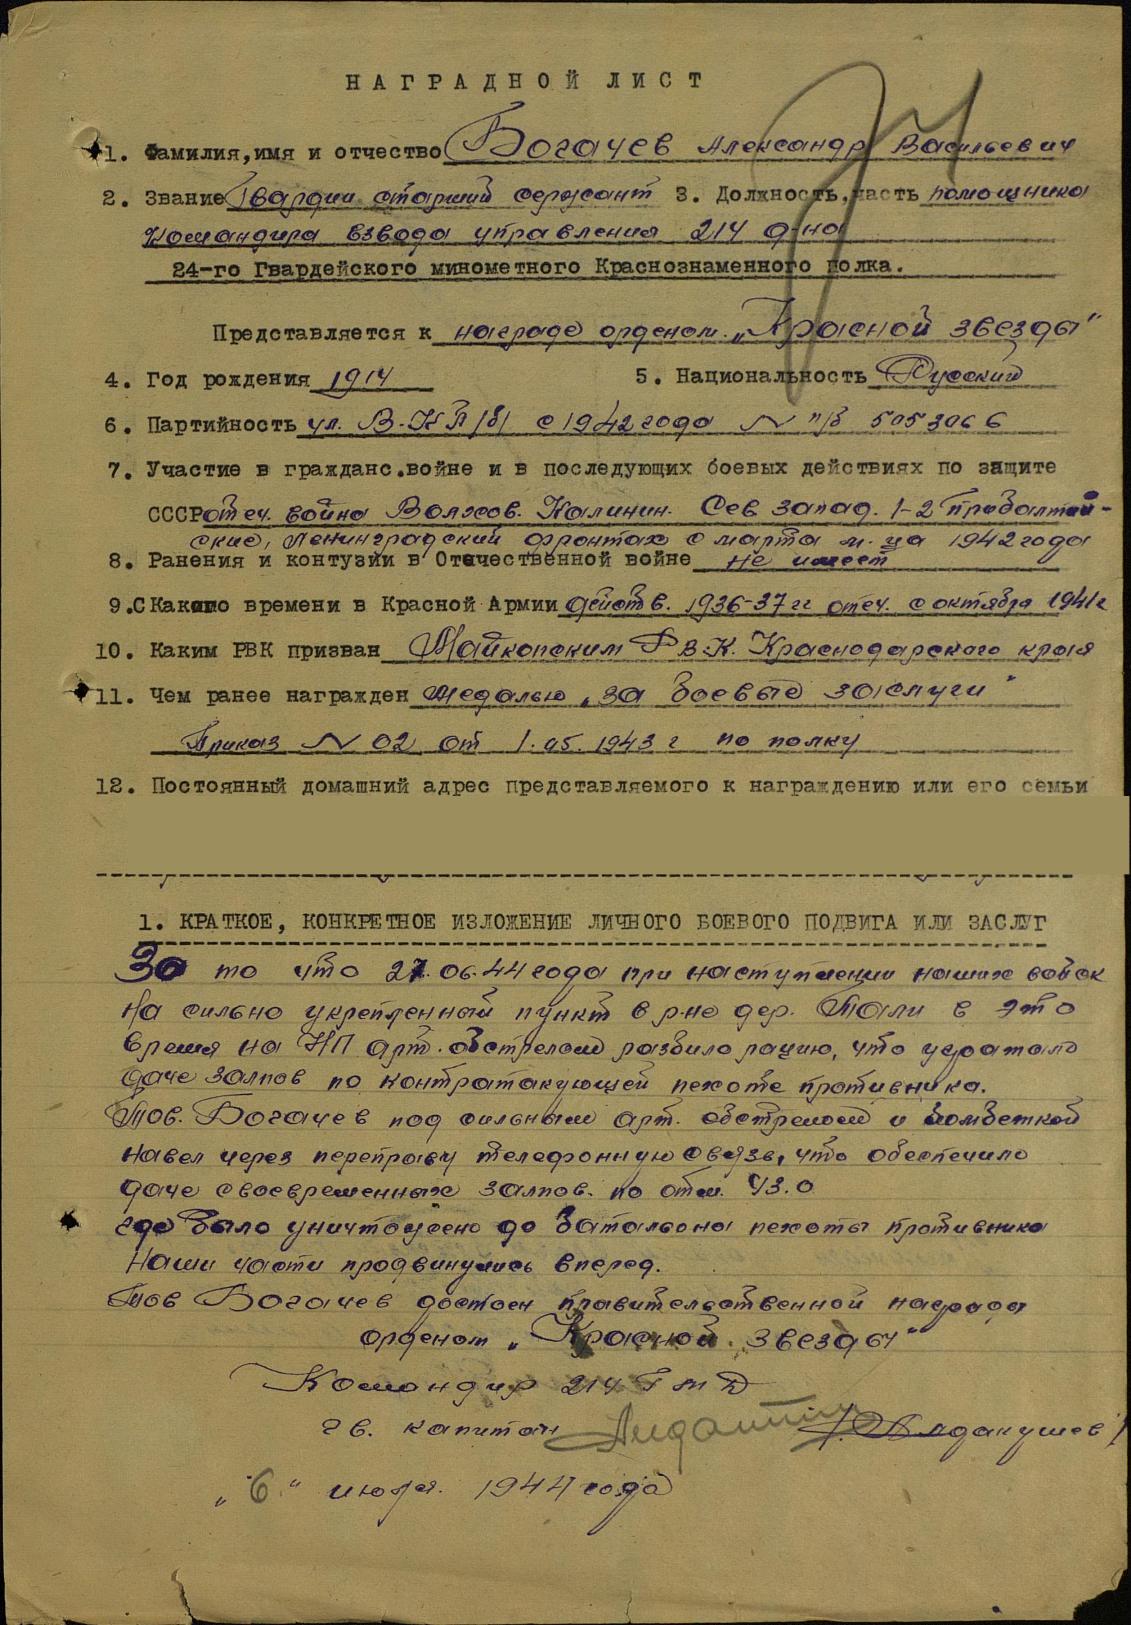 НАГРАДНОЙ ЛИСТ
1. Фамилия, имя и отчество Богачев Александр Васильевич
2. Звание Гвардии старший сержант 3. Должность, часть помощника
командира взвода управления 214 д-на
24-го Гвардейского минометного Краснознаменного полка.
Представляется к награде орденом „Красной звезды"
4. Год рождения 1914 5. Национальность Русский
6. Партийность чл. В.К.П/б/ с 1942 года N п/б 5053066
7. Участие в гражданс.войне и в последующих боевых действиях по защите
СССР отеч. война Волхов. Калинин. Сев запад. 1-2 Прибалтий-
ские, Ленинградский фронтах с марта м-ца 1942 года
8. Ранения и контузии в Отечественной войне не имеет
9. С Какого времени в Красной Армии действ. 1936-37 гг отеч. с октября 1941 г
10. Каким РВК призван Майкопским Р.В.К. Краснодарского края
11. Чем ранее награжден медалью „За боевые заслуги"
Приказ N 02 от 1.05.1943 г по полку
12. Постоянный домашний адрес представляемого к награждению или его семьи
1. КРАТКОЕ, КОНКРЕТНОЕ ИЗЛОЖЕНИЕ ЛИЧНОГО БОЕВОГО ПОДВИГА ИЛИ ЗАСЛУГ
За то что 27.06.44 года при наступлении наших войск
на сильно укрепленный пункт в р-не дер. Тали в это
время на НП арт. обстрелом разбило рацию, что угрожало
даче залпов по контратакующей пехоте противника.
Тов. Богачев под сильным арт. обстрелом и бомбежкой
навел через переправу телефонную связь, что обеспечило
даче своевременных залпов. по отм. 43.0
где было уничтожено до батальона пехоты противника
Наши части продвинулись вперед.
Тов Богачев достоен правительственной награды
орденом „Красной звезды"
Командир 214 ГМД
гв. капитан
„6" июля. 1944 года